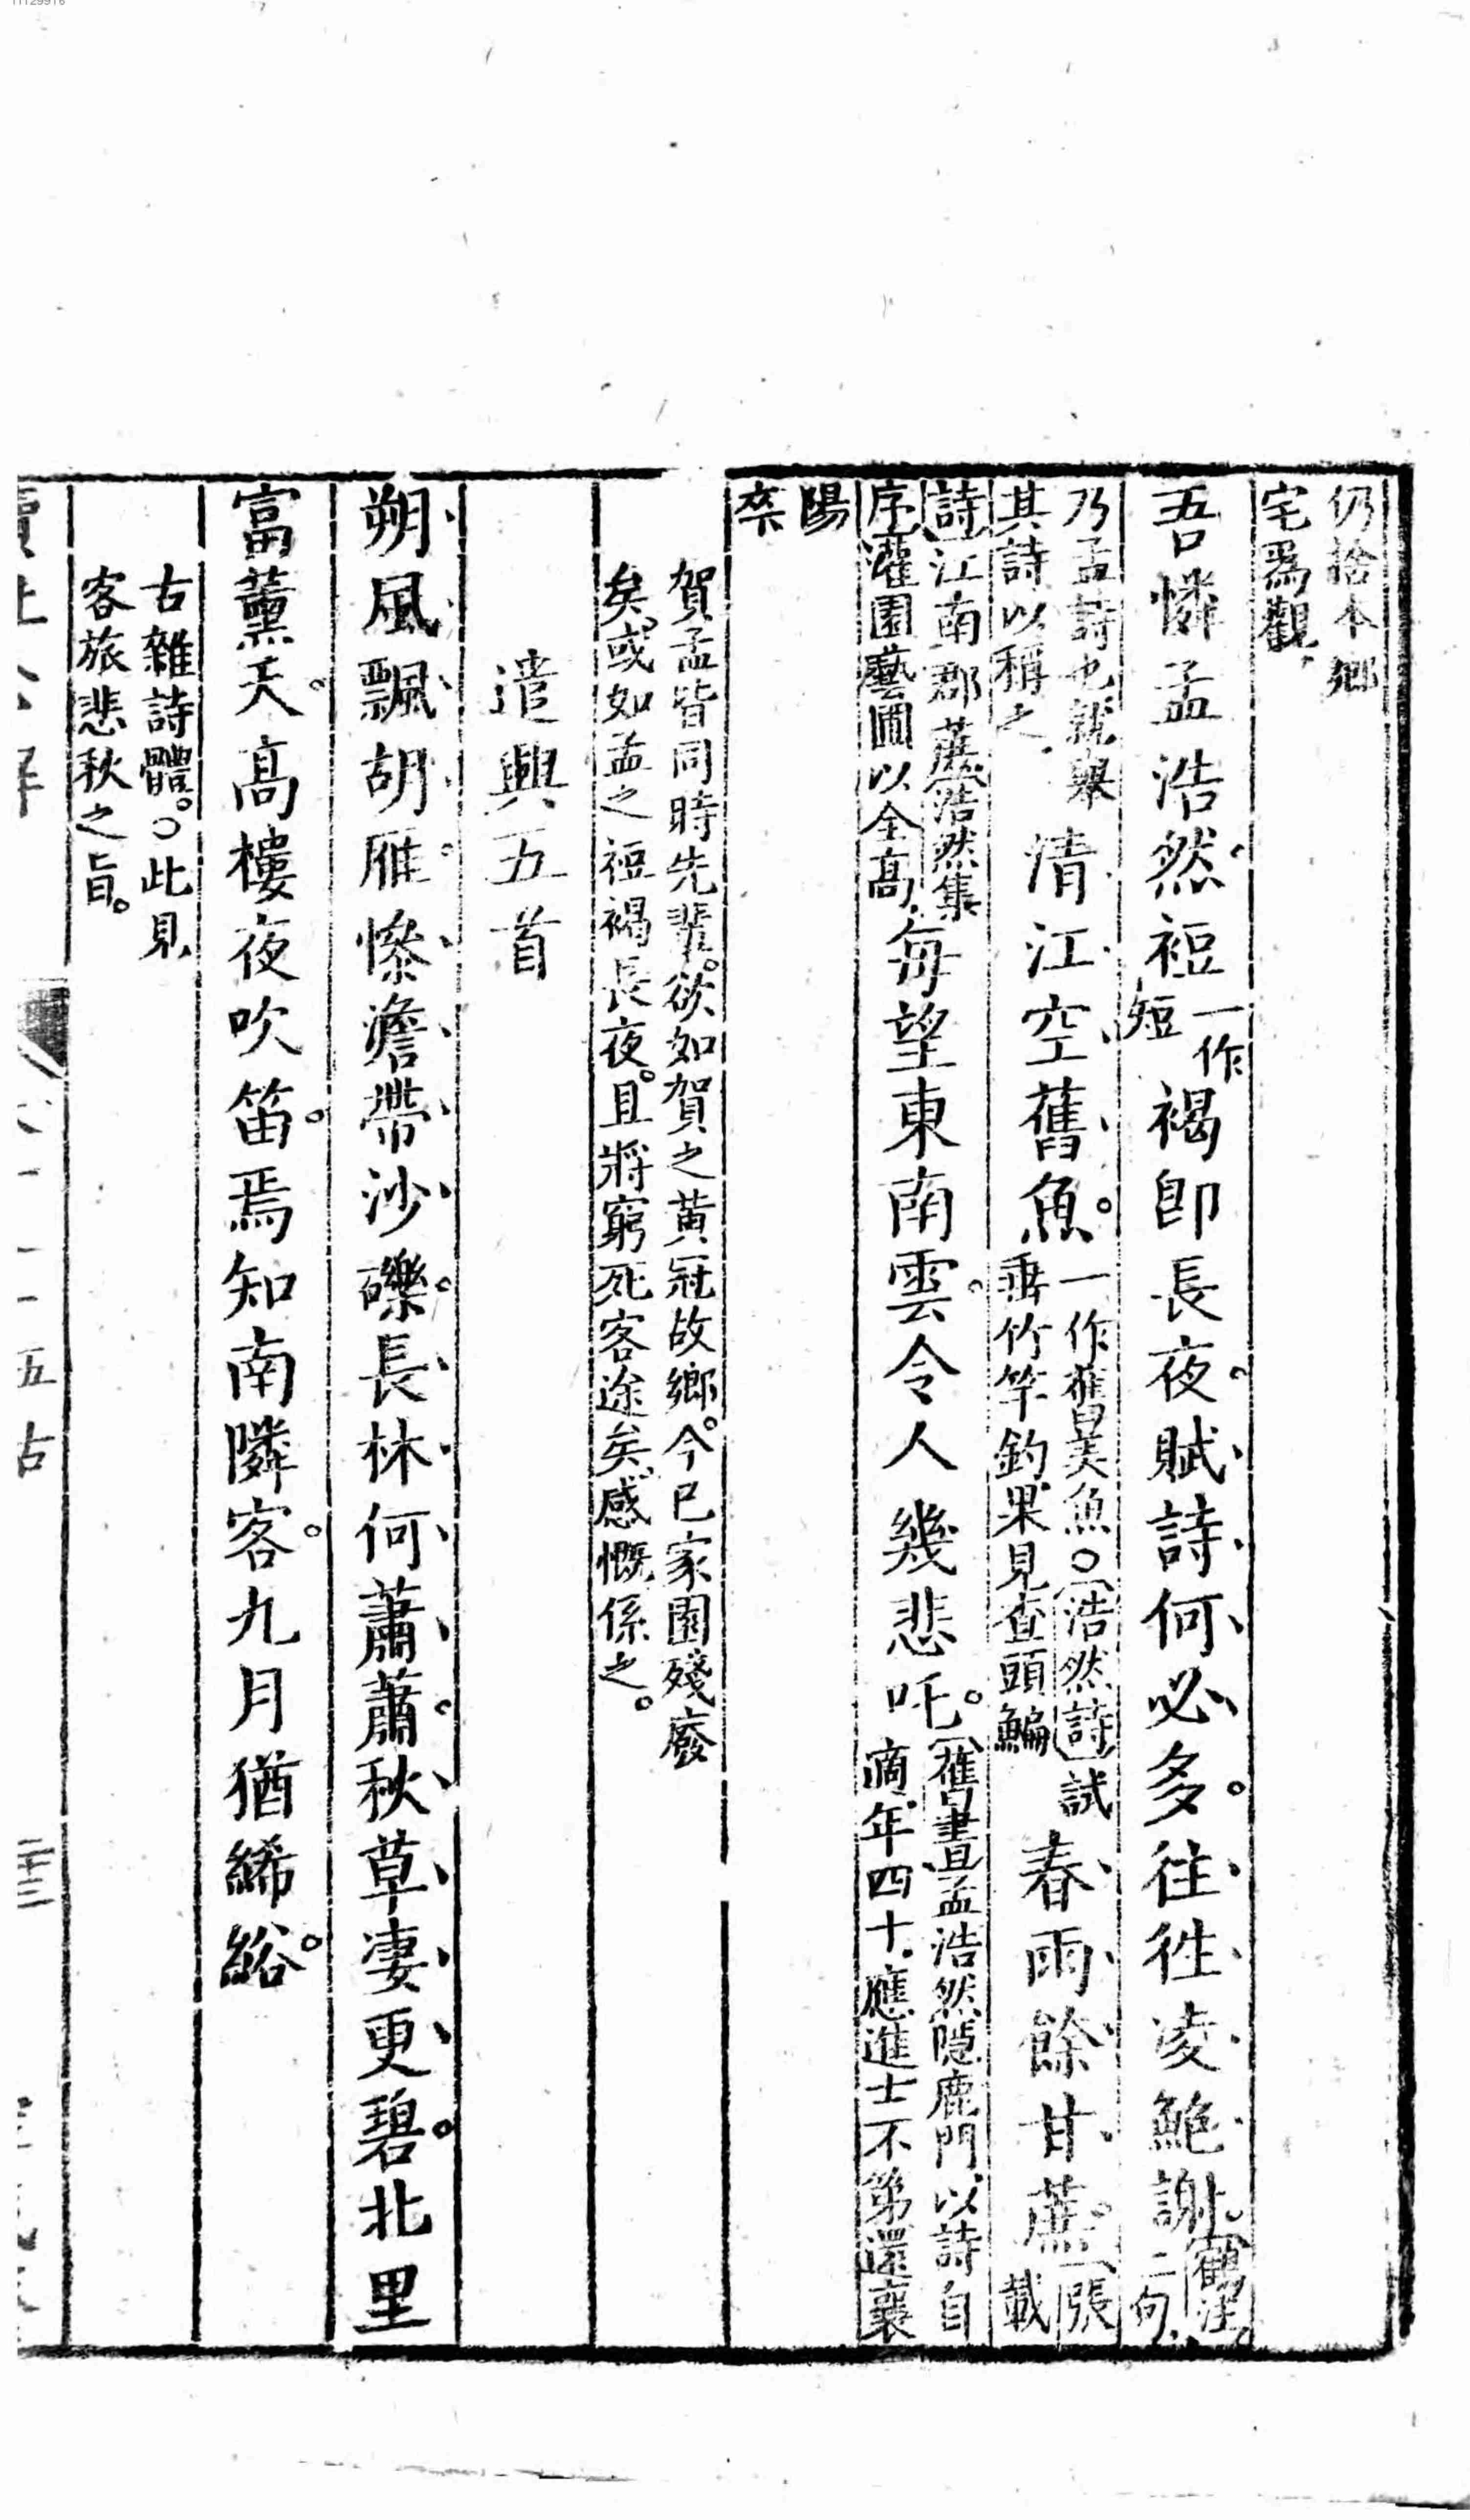 仍捨本鄉
宅爲觀
吾憐孟浩然裋一作短褐卽長夜賦詩何必多往往凌鮑謝鶴注二句
乃孟詩也就舉其詩以稱之清江空舊魚一作舊美魚○浩然詩試垂竹竿釣果見查頭鯿春雨餘甘蔗張載
詩江南郡蔗浩然集序灌園藝圃以全高每望東南雲令人幾悲吒舊書孟浩然隱鹿門以詩自適年四十應進士不第還襄
陽
卒
賀孟皆同時先輩欲如賀之黃冠故鄉今已家園殘廢
矣或如孟之裋褐長夜且將窮死客途矣感慨係之
遣興五首
朔風飄胡雁慘澹帶沙礫長林何蕭蕭秋草凄更碧北里
富薰天高樓夜吹笛焉知南隣客九月猶絺綌
古雜詩體○此見
客旅悲秋之旨
五古